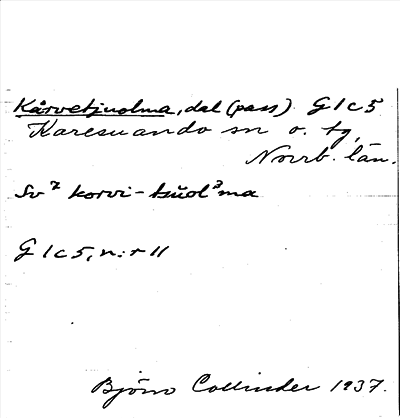 Kårvetjuolma, dal (pass) G 1 c 5
Karesuando sn o. tg,
Norrb. län.
Sv⁷ korvi-tšŭol³ma
G 1 c 5, n:r 11
Björn Collinder 1937.